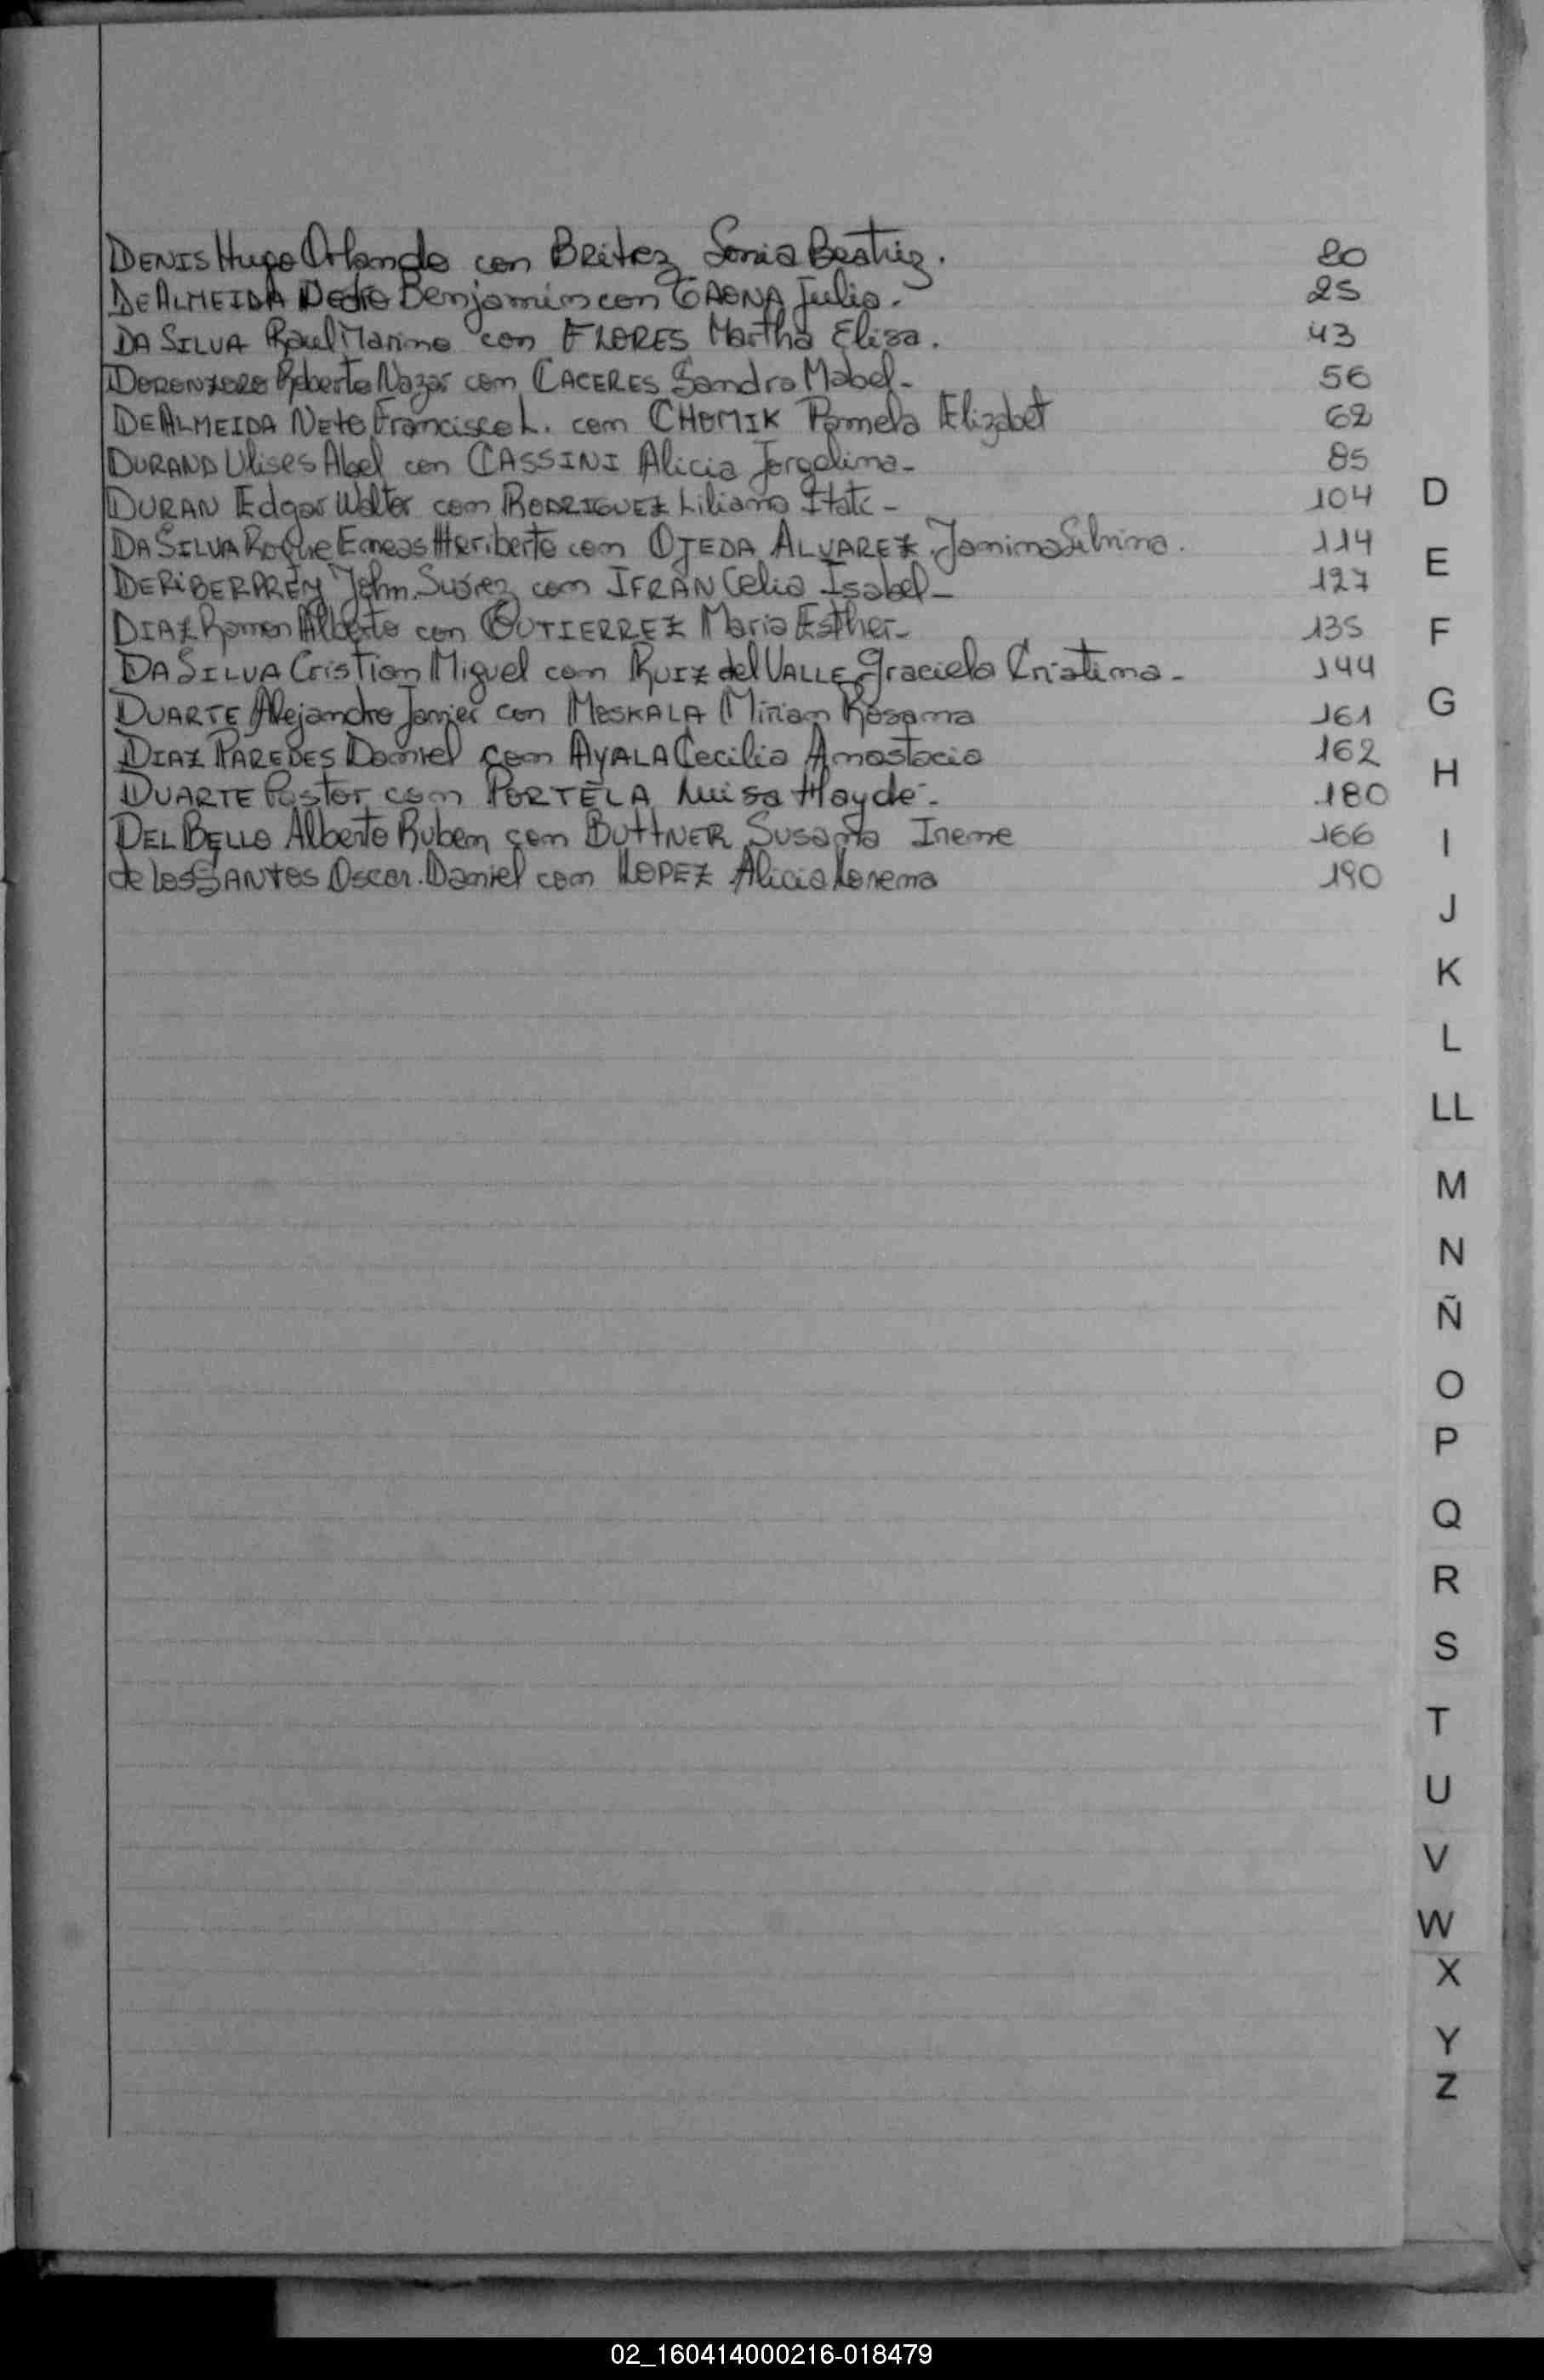 DENIS Hugo Orlando con Britez Sonia Beatriz. 20
DE ALMEIDA Pedro Benjamin con GAONA Julia. 25
DA SILVA Raul Marino con FLORES Martha Elisa. 43
Roberto Nazar con CACERES Sandra Mabel- 56
DE ALMEIDA Neto Francisco L. con CHOMIK Pamela Elizabet 62
DURAND Ulises Abel con CASSINI Alicia Jorgelina- 85
DURAN Edgar Walter con RODRIGUEZ Liliana Itati- 104
DA SILVA Roque Eneas Heriberto con OJEDA ALVAREZ Janina Silvina. 114
John Suarez con IFRAN Celia Isabel- 127
DIAZ Ramon Alberto con GUTIERREZ Maria Esther- 135
DA SILVA Cristian Miguel con RUIZ del VALLE Graciela Cristina- 144
DUARTE Alejandro Javier con MOSKALA Miriam Rosana 161
DIAZ PAREDES Daniel con AYALA Cecilia Anastacia 162
DUARTE Pastor con PORTELA Luisa Hayde- 180
DEL BELLO Alberto Ruben con BUTTNER Susana Irene 166
de los SANTOS Oscar Daniel con LOPEZ Alicia Lorena 190
D
E
F
G
H
I
J
K
L
LL
M
N
Ñ
O
P
Q
R
S
T
U
V
W
X
Y
Z
02_160414000216-018479